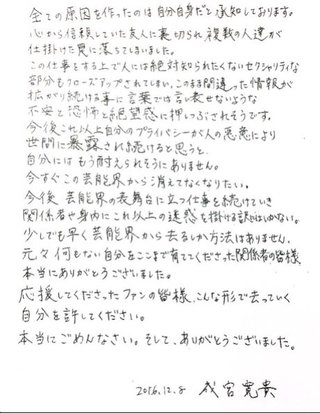 全ての原因を作ったのは自分自身だと承知しております。
心から信頼していた友人に裏切られ複数の人達が
仕掛けた罠に落ちてしまいました。
この仕事をする上で人には絶対知られたくないセクシャリティな
部分もクローズアップされてしまい、このまま間違った情報が
拡がり続ける事に言葉では言い表せないような
不安と恐怖と絶望感に押しつぶされそうです。
今後これ以上自分のプライバシーが人の悪意により
世間に暴露され続けると思うと、
自分にはもう耐えられそうにありません。
今すぐこの芸能界から消えてなくなりたい。
今後、芸能界の表舞台に立つ仕事を続けていき
関係者や身内にこれ以上の迷惑を掛ける訳にはいかない。
少しでも早く芸能界から去るしか方法はありません。
元々何もない自分をここまで育ててくださった関係者の皆様
本当にありがとうございました。
応援してくださったファンの皆様、こんな形で去っていく
自分を許してください。
本当にごめんなさい。そして、ありがとうございました。
2016.12.8 成宮寛貴